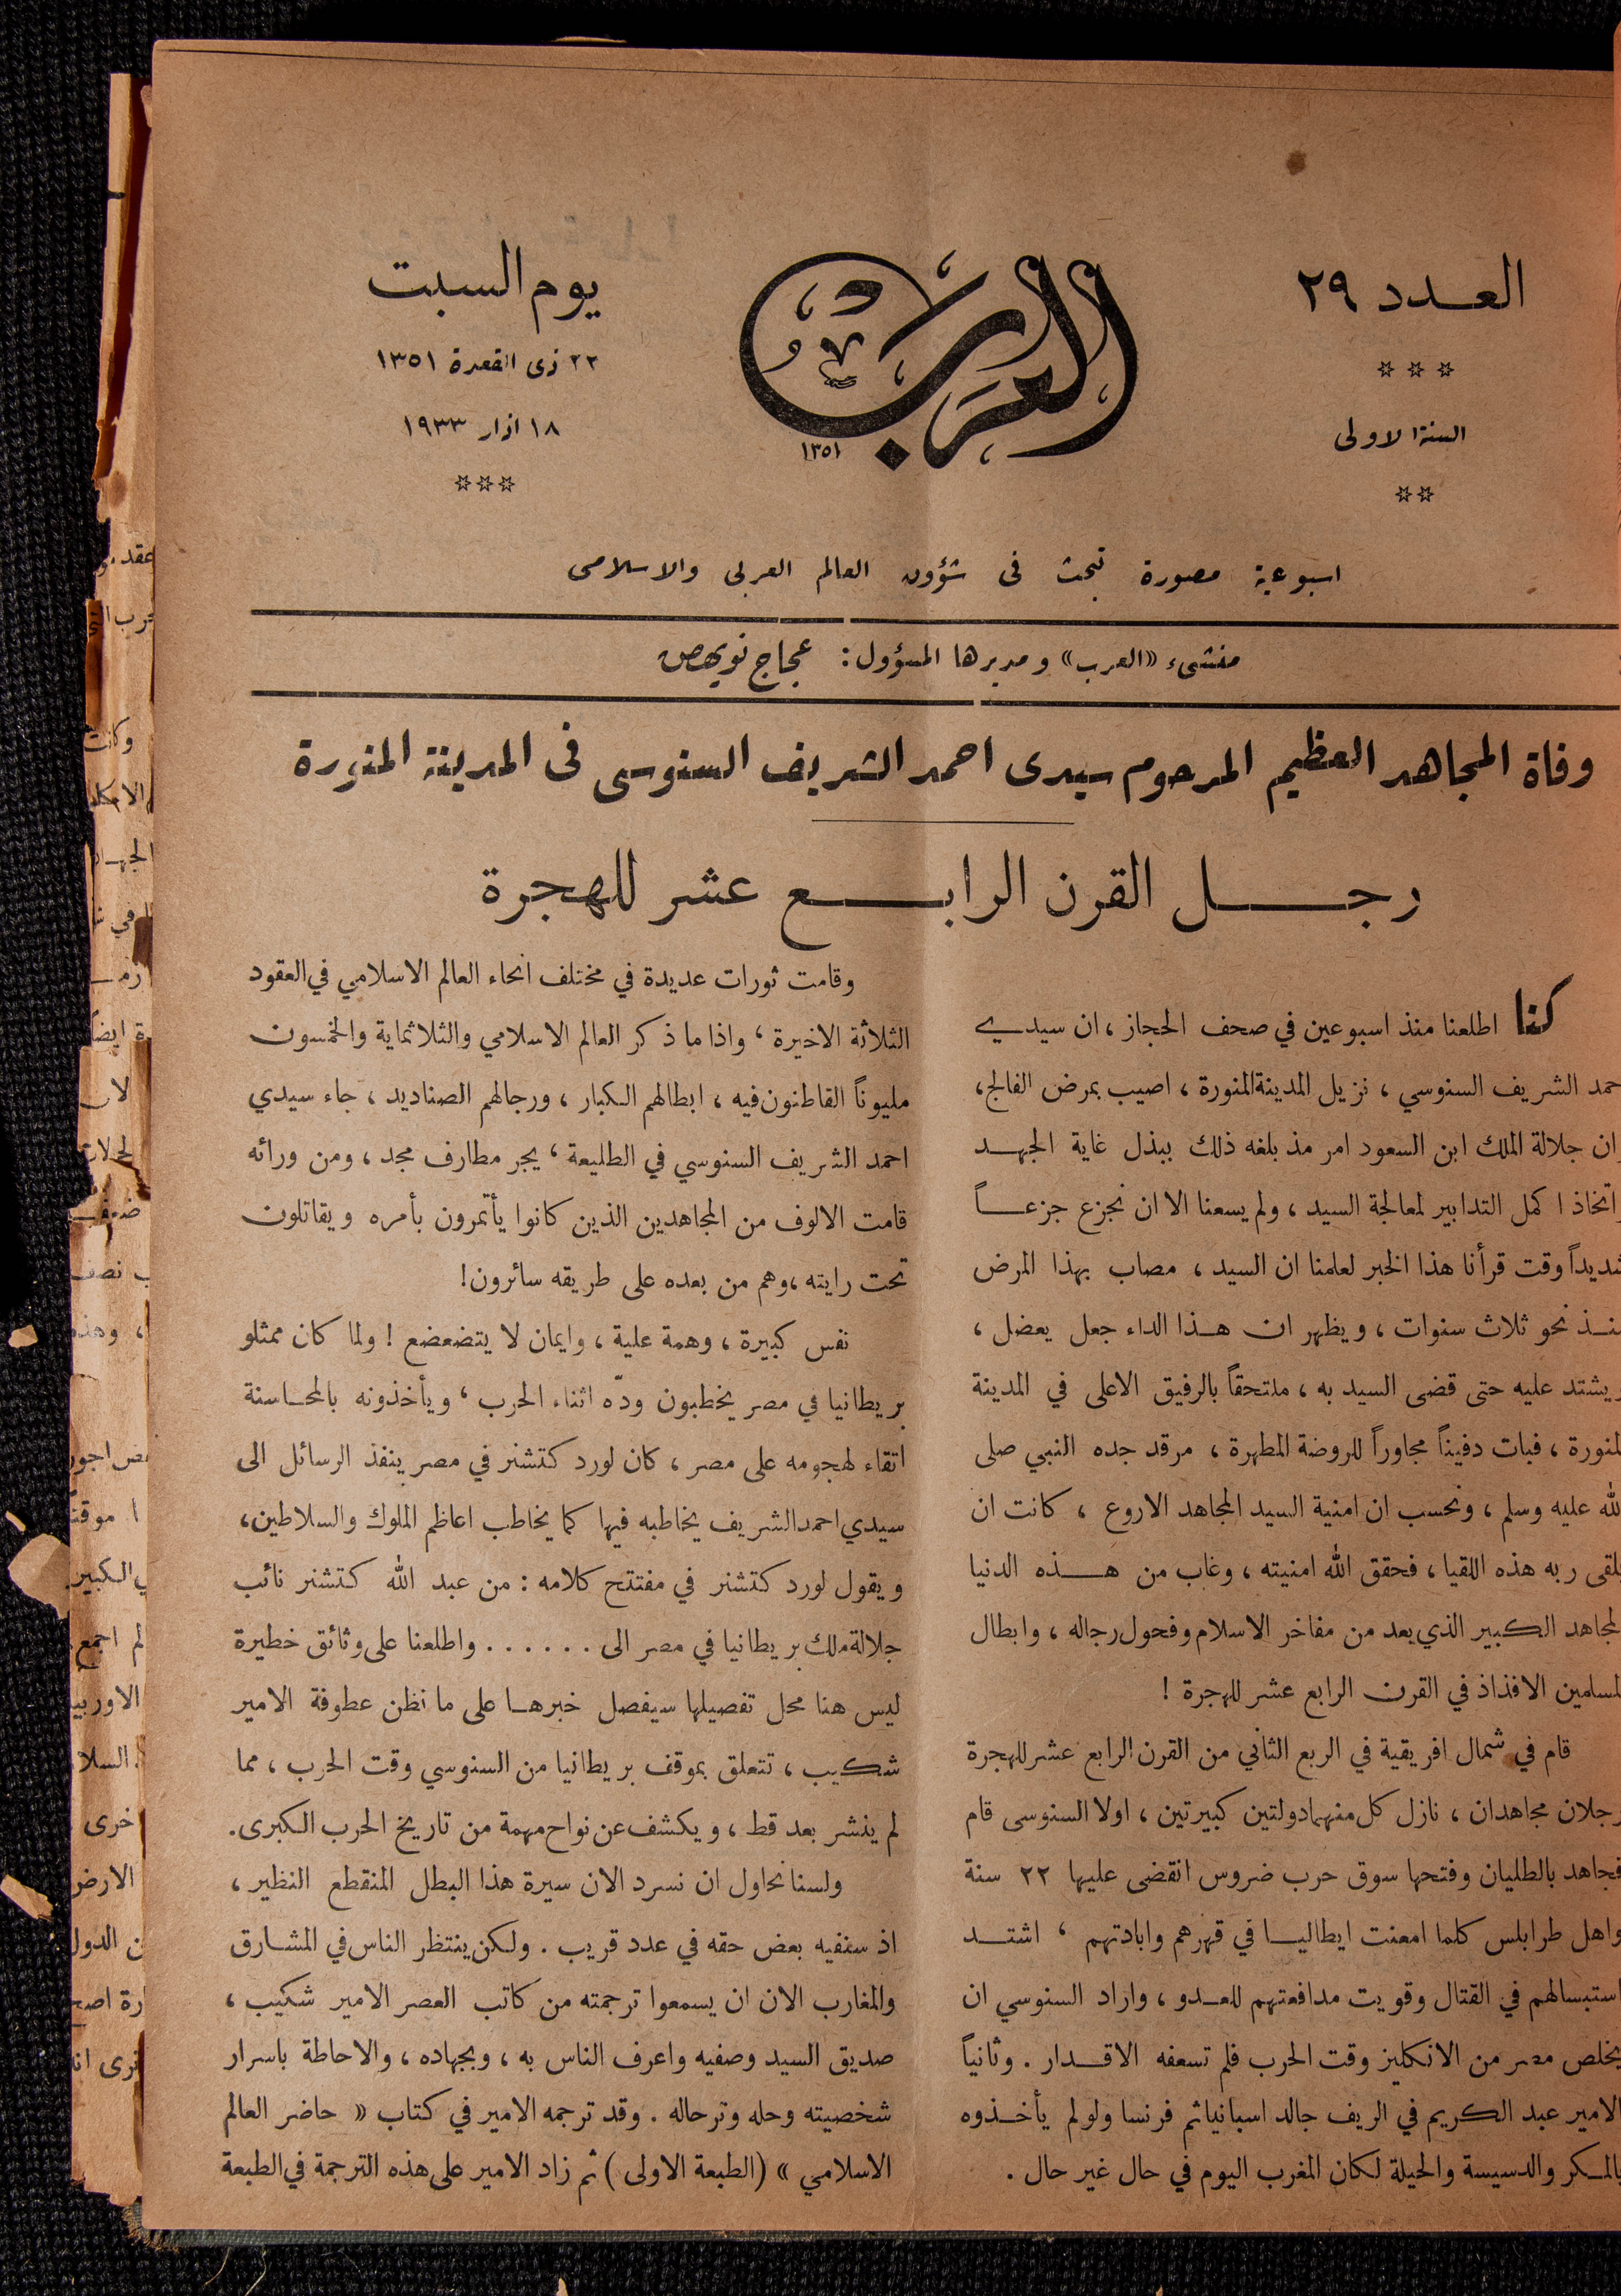 العدد ٢٩
السنة الاولى
العرب
١٣٥١
يوم السبت
٢٢ ذى القعدة ١٣٥١
١٨ اذار ١٩٣٣
اسبوعية مصورة تبحث فى شؤون العالم العربى والاسلامى
منشىء «العرب» ومديرها المسؤول: عجاج نويهض
وفاة المجاهد العظيم المرحوم سيدى احمد الشريف السنوسى فى المدينة المنورة
رجل القرن الرابع عشر للهجرة
كنا اطلعنا منذ اسبوعين في صحف الحجاز، ان سيدي
احمد الشريف السنوسي، نزيل المدينة المنورة، اصيب بمرض الفالج،
وان جلالة الملك ابن السعود امر مذ بلغه ذلك ببذل غاية الجهد
واتخاذ اكمل التدابير لمعالجة السيد، ولم يسعنا الا ان نجزع جزعاً
شديداً وقت قرأنا هذا الخبر لعلمنا ان السيد، مصاب بهذا المرض
منذ نحو ثلاث سنوات، ويظهر ان هذا الداء جعل يعضل،
ويشتد عليه حتى قضى السيد به، ملتحقاً بالرفيق الاعلى في المدينة
المنورة، فبات دفيناً مجاوراً للروضة المطهرة، مرقد جده النبي صلى
الله عليه وسلم، ونحسب ان امنية السيد المجاهد الاروع، كانت ان
يلقى ربه هذه اللقيا، فحقق الله امنيته، وغاب من هذه الدنيا
المجاهد الكبير الذي يعد من مفاخر الاسلام وفحول رجاله، وابطال
المسلمين الافذاذ في القرن الرابع عشر للهجرة!
قام في شمال افريقية في الربع الثاني من القرن الرابع عشر للهجرة
رجلان مجاهدان، نازل كل منهما دولتين كبيرتين، اولا السنوسى قام
فجاهد بالطليان وفتحها سوق حرب ضروس انقضى عليها ٢٢ سنة
واهل طرابلس كلما امعنت ايطاليا في قهرهم وابادتهم، اشتد
استبسالهم في القتال وقويت مدافعتهم للعدو، واراد السنوسي ان
يخلص مصر من الانكليز وقت الحرب فلم تسعفه الاقدار. وثانياً
الامير عبد الكريم في الريف جالد اسبانيا ثم فرنسا ولو لم يأخذوه
بالمكر والدسيسة والحيلة لكان المغرب اليوم في حال غير حال.
وقامت ثورات عديدة في مختلف انحاء العالم الاسلامي في العقود
الثلاثة الاخيرة، واذا ما ذكر العالم الاسلامي والثلاثماية والخمسون
مليوناً القاطنون فيه، ابطالهم الكبار، ورجالهم الصناديد، جاء سيدي
احمد الشريف السنوسي في الطليعة، يجر مطارف مجد، ومن ورائه
قامت الالوف من المجاهدين الذين كانوا يأتمرون بأمره ويقاتلون
تحت رايته، وهم من بعده على طريقه سائرون!
نفس كبيرة، وهمة علية، وايمان لا يتضعضع! ولما كان ممثلو
بريطانيا في مصر يخطبون ودّه اثناء الحرب، ويأخذونه بالمحاسنة
اتقاء لهجومه على مصر، كان لورد كتشنر في مصر ينفذ الرسائل الى
سيدي احمد الشريف يخاطبه فيها كما يخاطب اعاظم الملوك والسلاطين،
ويقول لورد كتشنر في مفتتح كلامه: من عبد الله كتشنر نائب
جلالة ملك بريطانيا في مصر الى . . . . . . واطلعنا على وثائق خطيرة
ليس هنا محل تفصيلها سيفصل خبرها على ما نظن عطوفة الامير
شكيب، تتعلق بموقف بريطانيا من السنوسي وقت الحرب، مما
لم ينشر بعد قط، ويكشف عن نواح مهمة من تاريخ الحرب الكبرى.
ولسنا نحاول ان نسرد الان سيرة هذا البطل المنقطع النظير،
اذ سنفيه بعض حقه في عدد قريب. ولكن ينتظر الناس في المشارق
والمغارب الان ان يسمعوا ترجمته من كاتب العصر الامير شكيب،
صديق السيد وصفيه واعرف الناس به، وبجهاده، والاحاطة باسرار
شخصيته وحله وترحاله. وقد ترجمه الامير في كتاب «حاضر العالم
الاسلامي» (الطبعة الاولى) ثم زاد الامير على هذه الترجمة في الطبعة